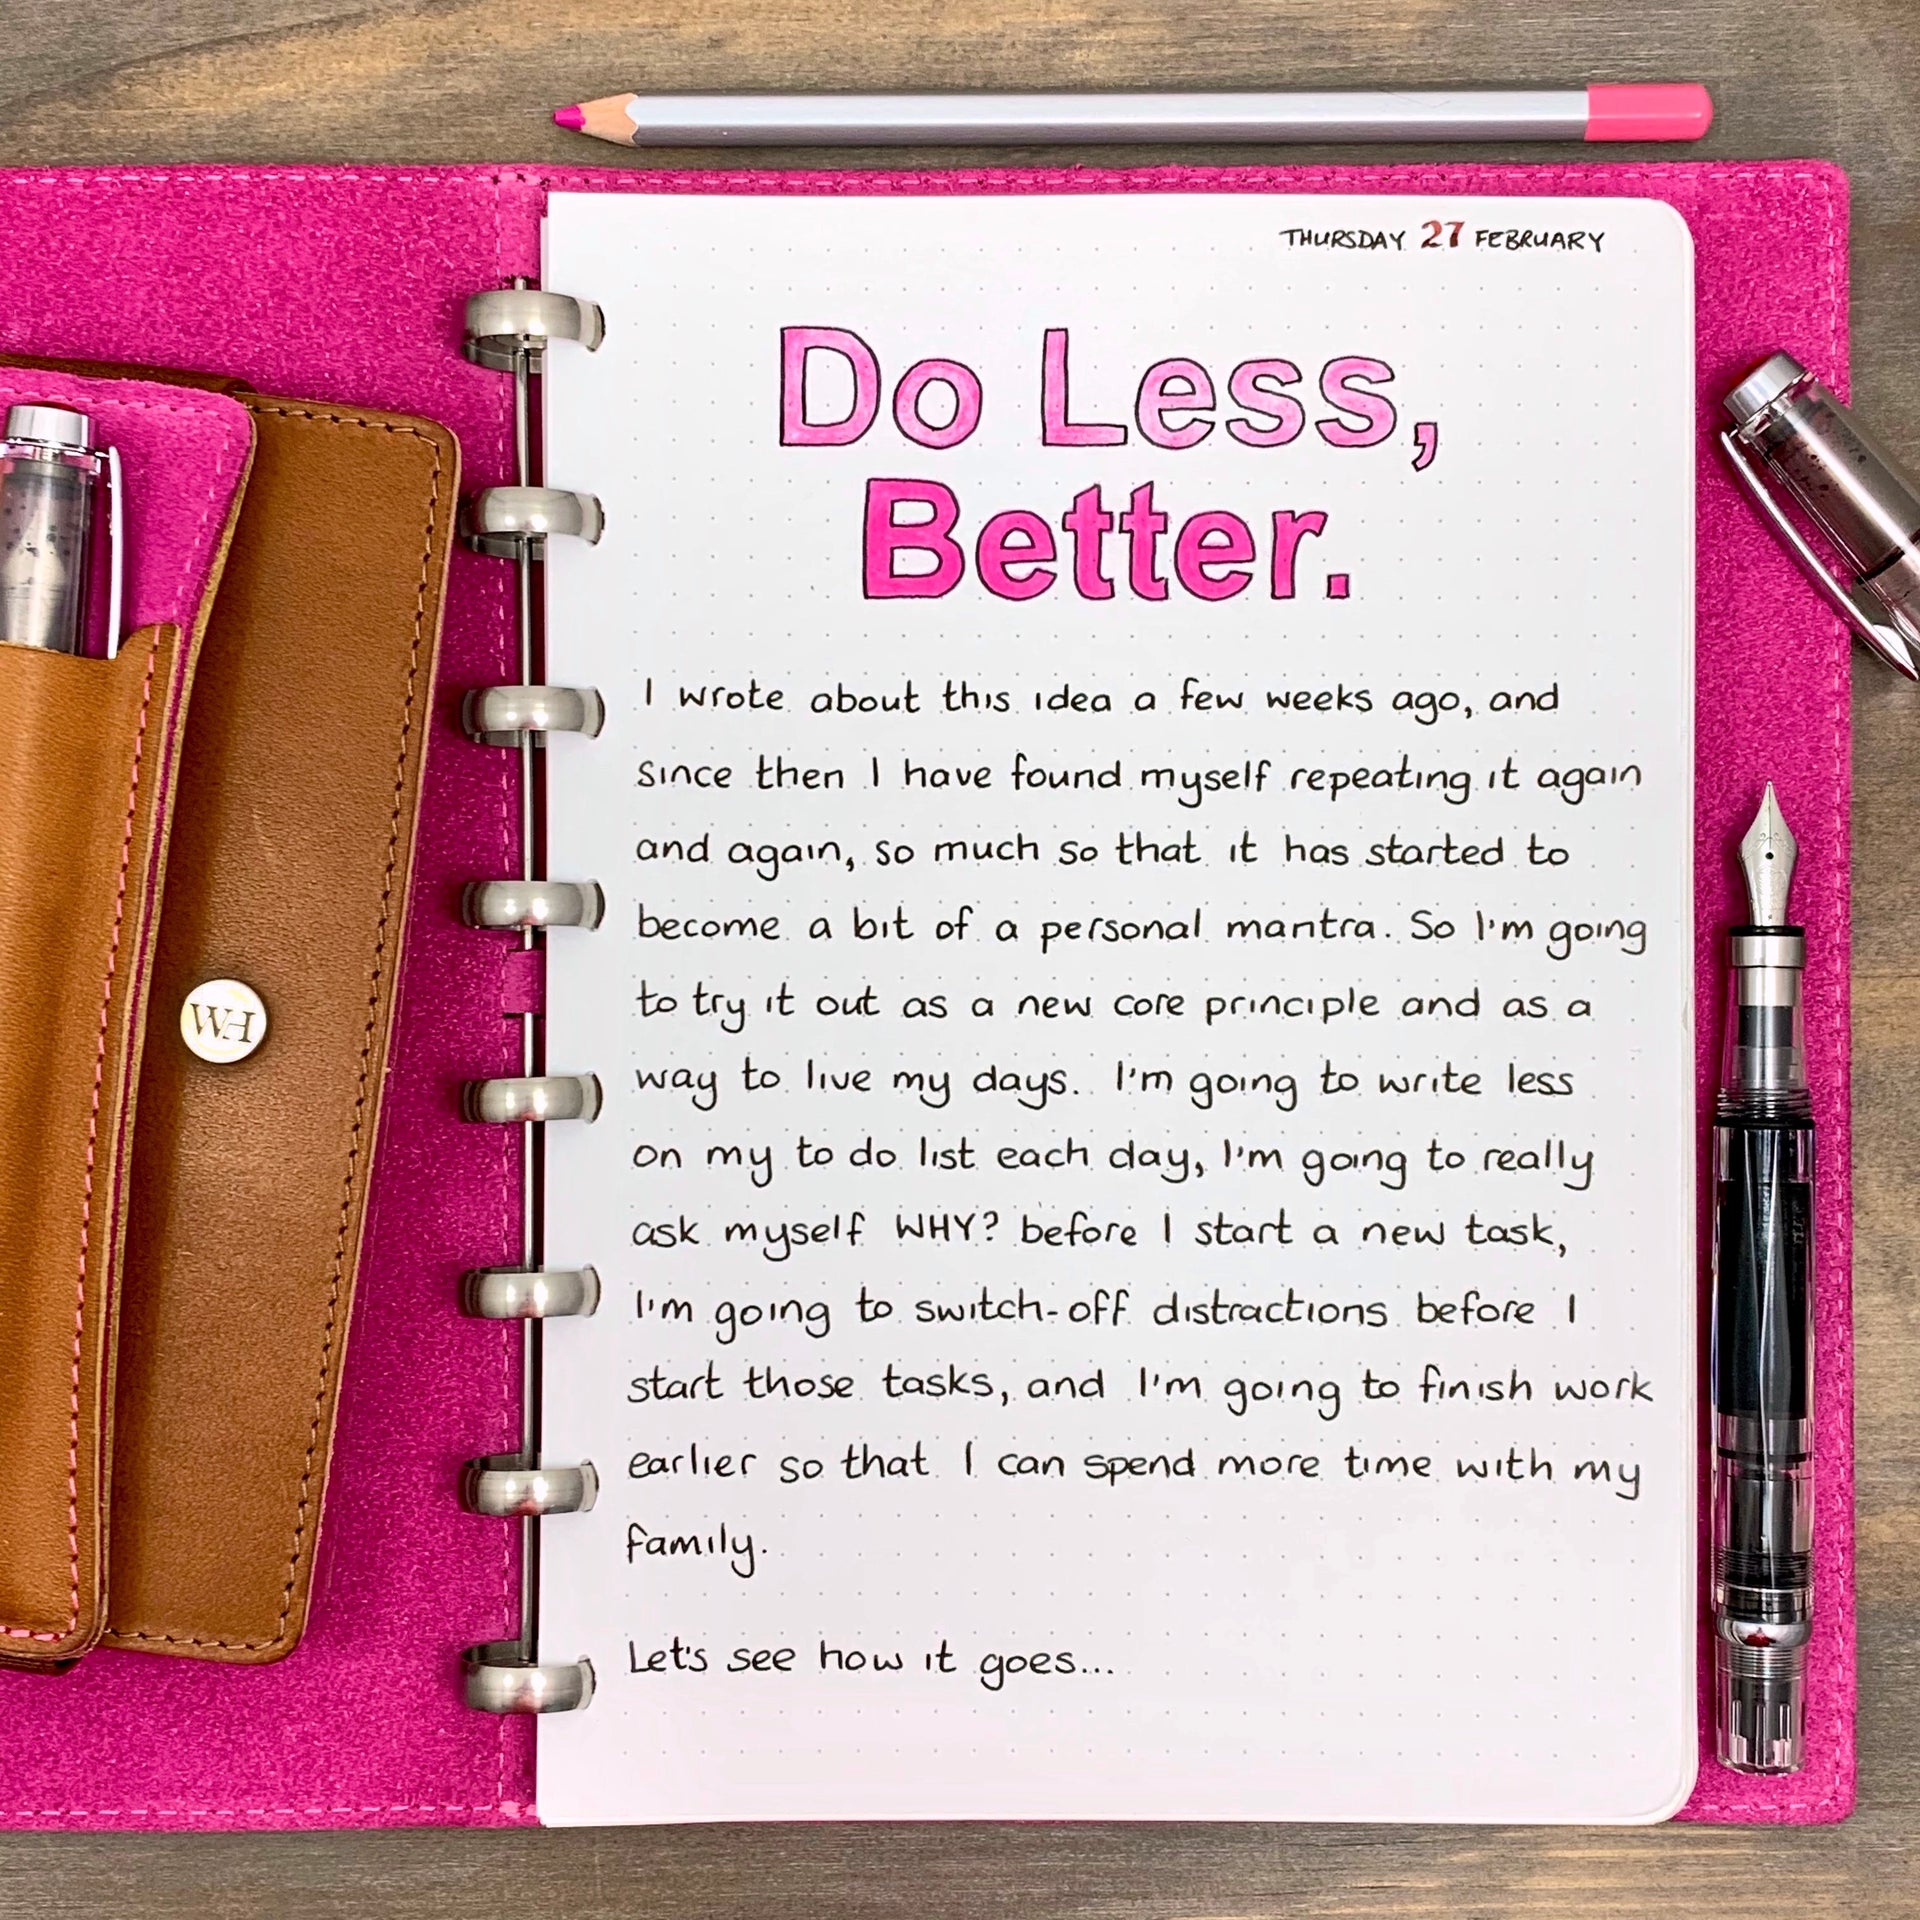 THURSDAY 27 FEBRUARY
Do Less,
Better.
I wrote about this idea a few weeks ago, and
since then I have found myself repeating it again
and again, so much so that it has started to
become a bit of a personal mantra. So I'm going
to try it out as a new core principle and as a
way to live my days. I'm going to write less
on my to do list each day, I'm going to really
ask myself WHY? before I start a new task,
I'm going to switch-off distractions before I
start those tasks, and I'm going to finish work
earlier so that I can spend more time with my
family.
Let's see how it goes...
WH